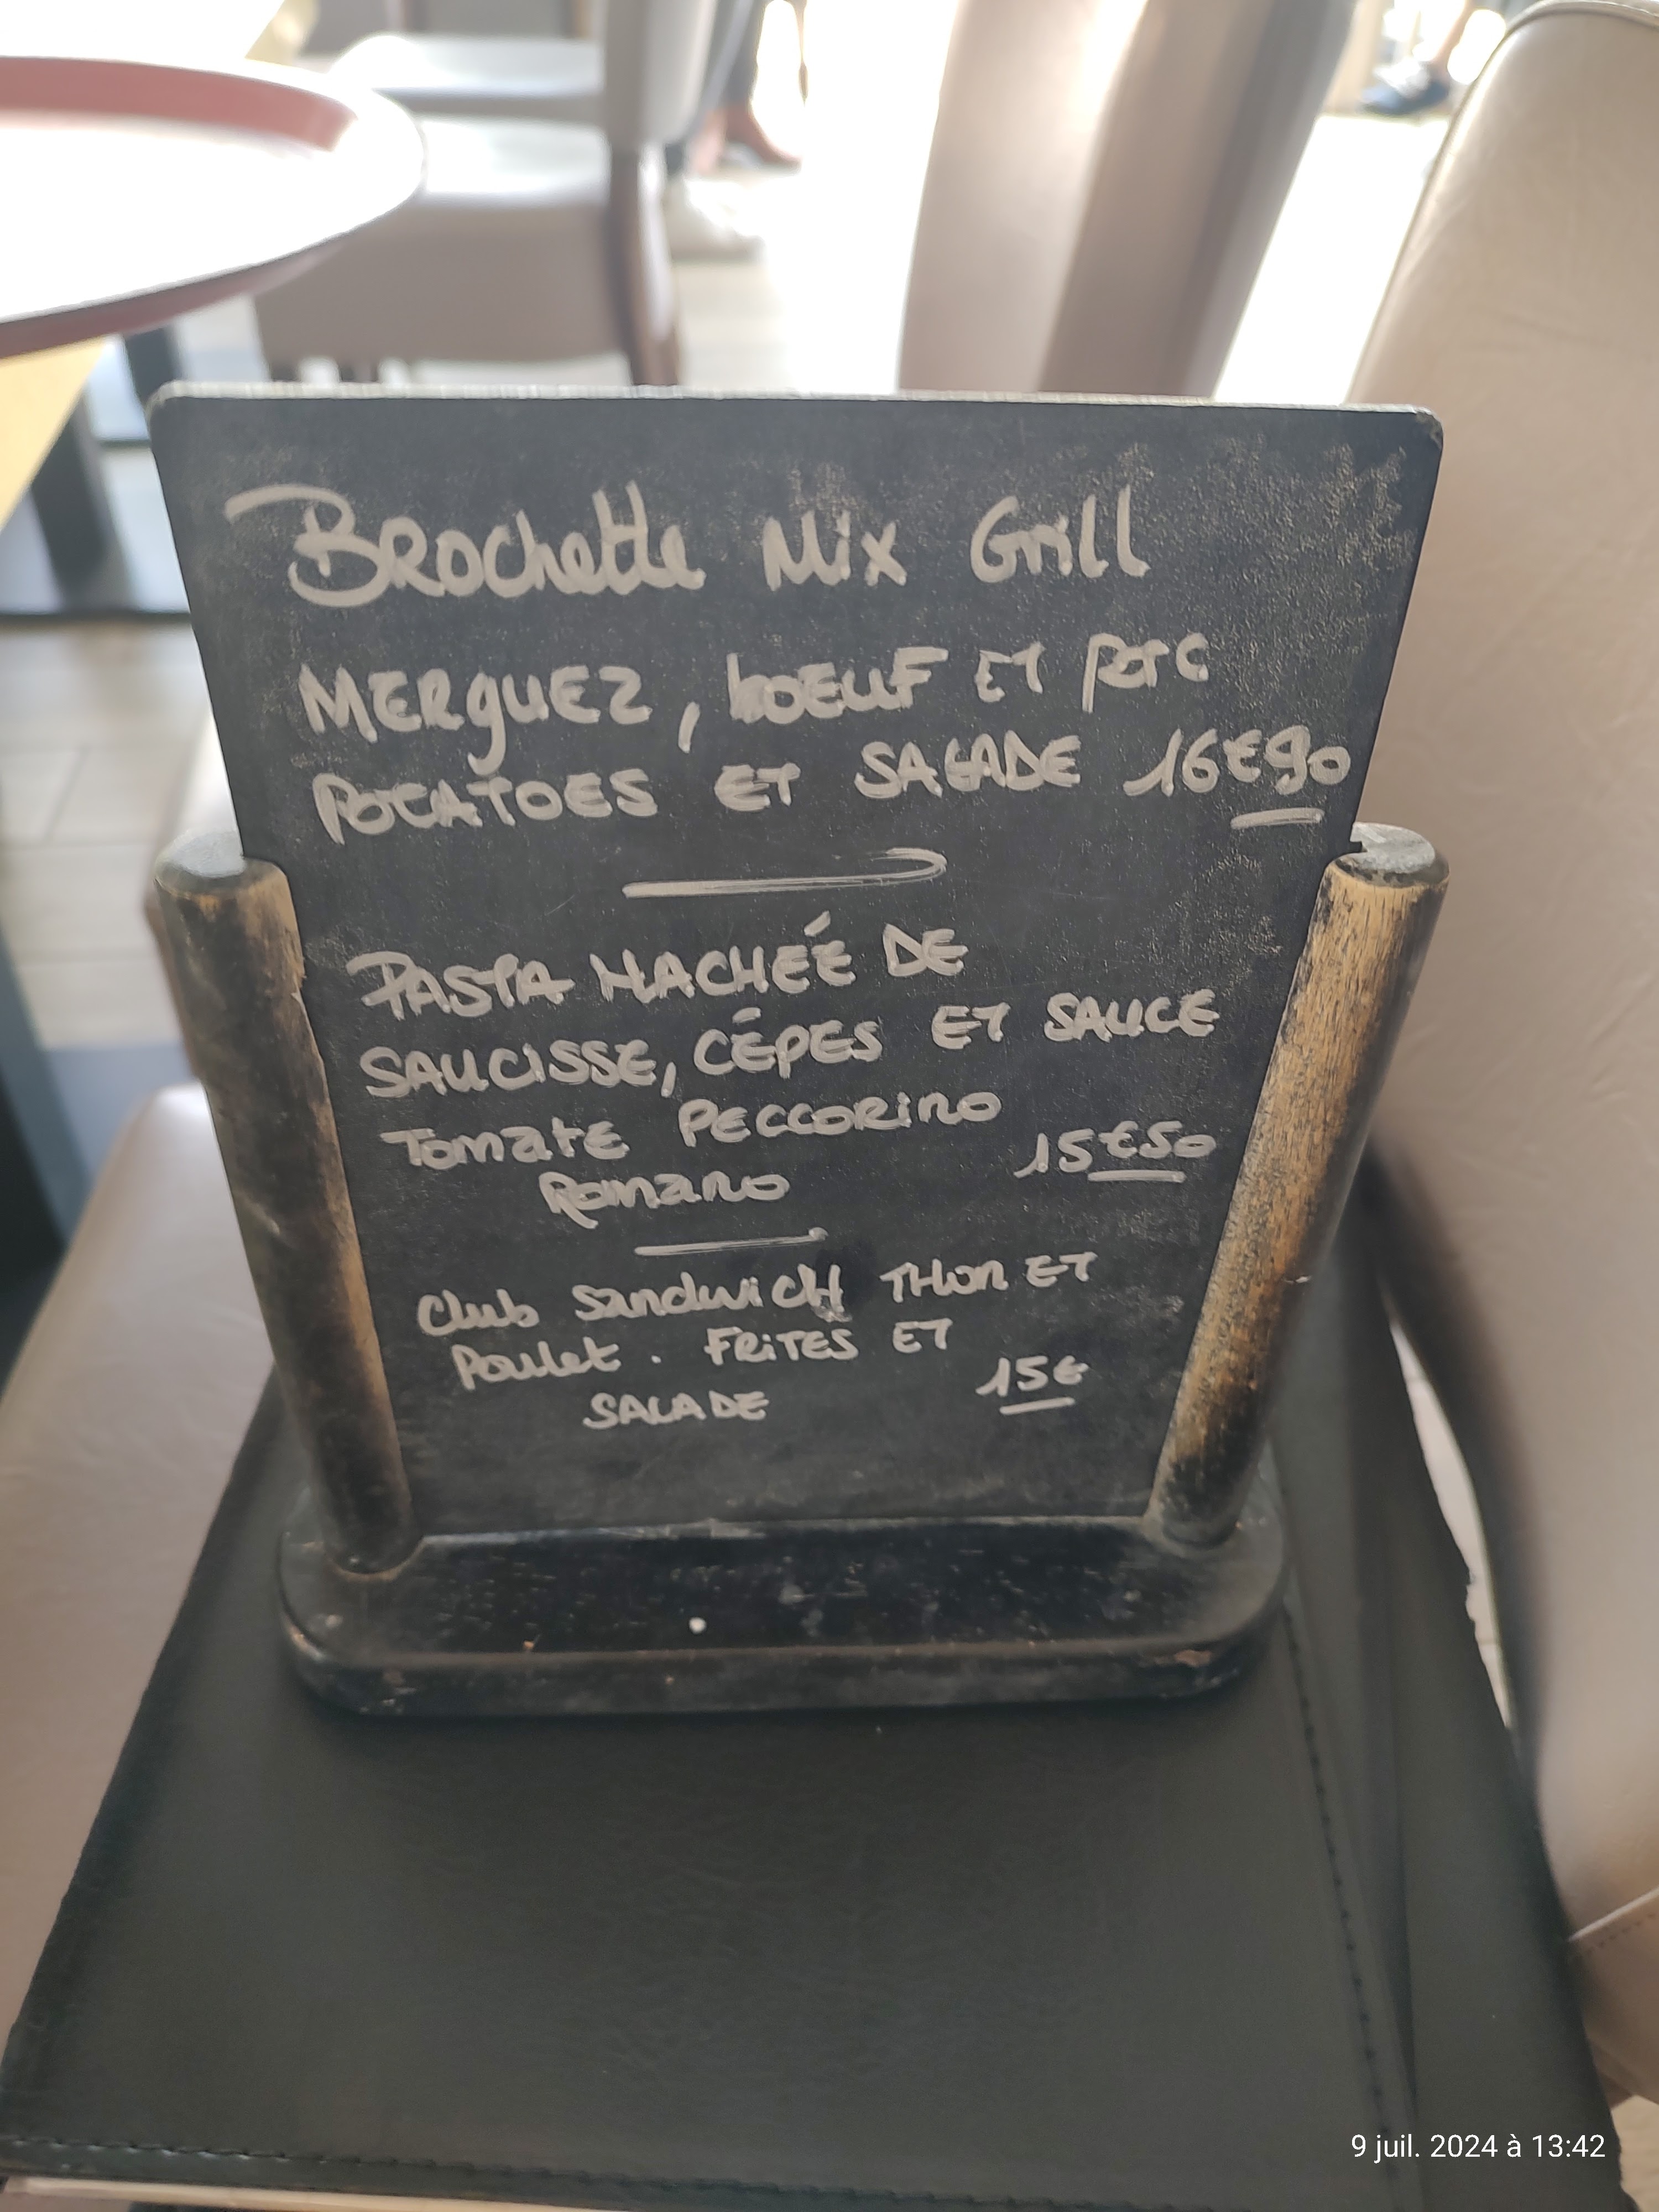 Brochette Mix Grill
MERGUEZ, bOEUF ET PORC
POTATOES ET SALADE 16€90
PASTA MACHÉE DE
SAUCISSE, CÉPES ET SAUCE
TomatE PECCORiNO
Romano 15€50
Club SandwicH THon ET
Poulet. FRiTES ET
SALADE 15€
9 juil. 2024 à 13:42